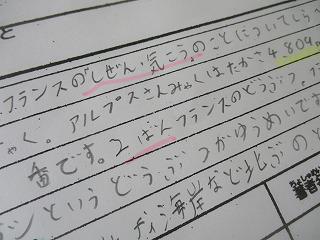 と
フランスのしぜん・気こうのことについてしらべ
ゃく。アルプスさんみゃくはたかさ4809m
番です。2ばんフランスのどうぶつ。フ
ンというどうぶつがゆうめいです
ディ海岸など北ぶのと